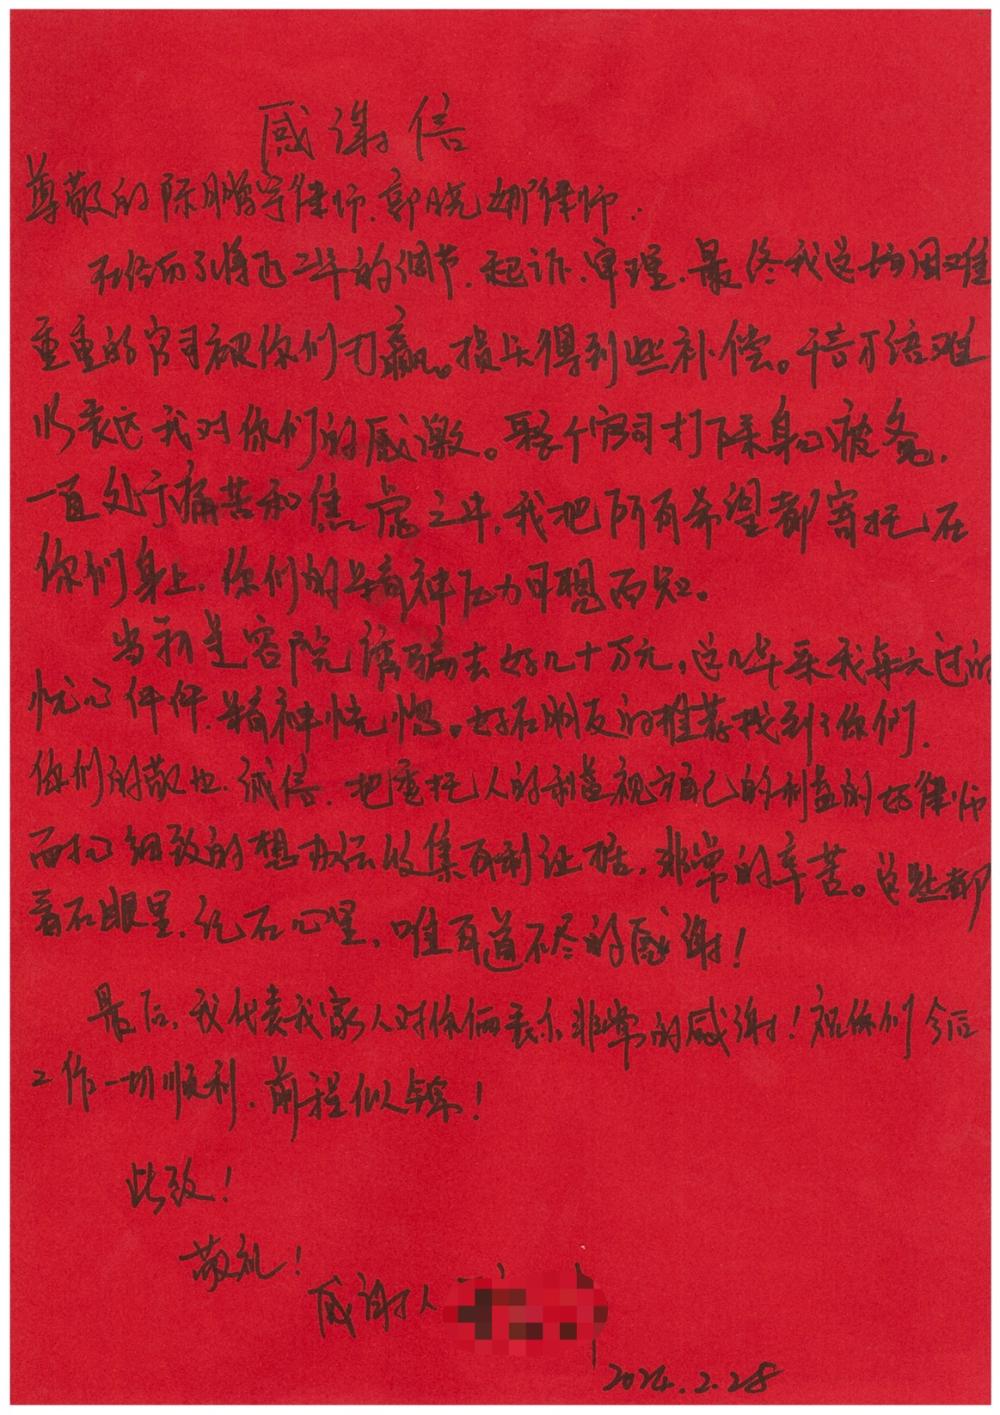 感谢信
尊敬的陈鹏宇律师、郭晓娜律师：
在经历了将近二年的调节、起诉、审理、最终我这场困难
重重的官司被你们打赢。损失得到些补偿。千言万语难
以表达我对你们的感激。整个官司打下来身心疲惫，
一直处于痛苦和焦虑之中，我把所有希望都寄托在
你们身上，你们的精神压力可想而知。
当初美容院诱骗去好几十万元，这几年来我每天过的
忧心忡忡、精神恍惚。好在朋友的推荐找到了你们，
你们的敬业、诚信、把委托人的利益视为自己的利益的好律师
而且细致的想办法收集有利证据，非常的辛苦。这些都
看在眼里，记在心里，唯有道不尽的感谢！
最后，我代表我家人对你俩表示非常的感谢！祝你们今后
工作一切顺利、前程似锦！
此致！
敬礼！
感谢人
2024.2.28